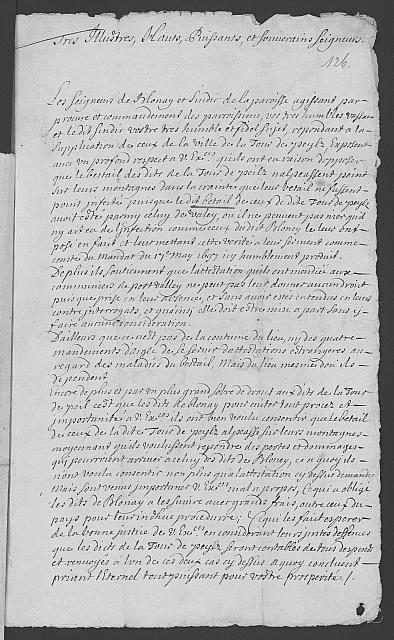 Tres Illustres, Hauts, Puissants, et souverains seigneurs.
126.
Les seigneurs de Blonay et sindic de la paroisse agissant par
procure et commandement des parroissiens, vos tres humbles vassaux
et le dit sindic vostre tres humble et fidel sujet, repondant a la
supplication de ceux de la ville de la Tour de peylz Exposent
avec un profond respect a V. Ex.ces qu'ils ont eu raison d'opposer
que le bestail des dits de la Tour de peilz n'alpeassent point
sur leurs montagnes dans la crainte que leur betail ne fussent
point infectés puisque le dit betail de ceux de dite Tour de peylz
avoit esté parmy celuy de Valey, ou il ne peuvent pas nier quil
ny ait eu de l'infection comme ceux du dit Bloney le leur ont
posé en fait et leur mettant cette verité a leur serment comme
conste du Mandat du 17e May 1697 icy humblement produit.
De plus ils soustiennent que l'attestation quils ont mendiée aux
communiers de port Valley ne peut pas leur donner aucun droit
puis que prise en leur absence, et sans avoir estés entendus en leurs
contre interrogats, et qu'ainsi elle doit estre mise a part sans ij
faire aucune consideration.
D'ailleurs que ce n'est pas de la coutume du lieu, ny des quatre
mandements d'aigle de se servir d'attestations estrangeres au
regard des maladies du bestail, Mais du lieu mesme dou ils
dependent.
Encore de plus et par un plus grand solve de droit aux dits de la Tour
de peil c'est que les dits de Blonay pour eviter tout procez et
importunité a V. Ex.ces ils ont bien voulu consentir que le betail
de ceux de la dite Tour de peylz alpeasse sur leurs montagnes
moyennant quils voulussent repondre des pertes et dommages
qui pourroient arriver a celuy des dits de Bloney, ce a quoy ils
n'ont voulu consentir non plus qu'a l'attestation cy dessus demandée
Mais sont venus importuner V. Ex.ces mal a propos, Ce qui a obligé
les dits de Blonay a les suivre a leur grands frais, outre ceux du
pays pour leur indhue procedure, Ce qui les fait esperer
de la bonne justice de V. Ex.ces en considerant leurs justes deffences
que les dicts de la Tour de peylz seront contables de tous despents
et renvoyés a l'un de ces deux cas cy dessus a quoy concluent
prient l'Eternel tout puissant pour vostre prosperité /.